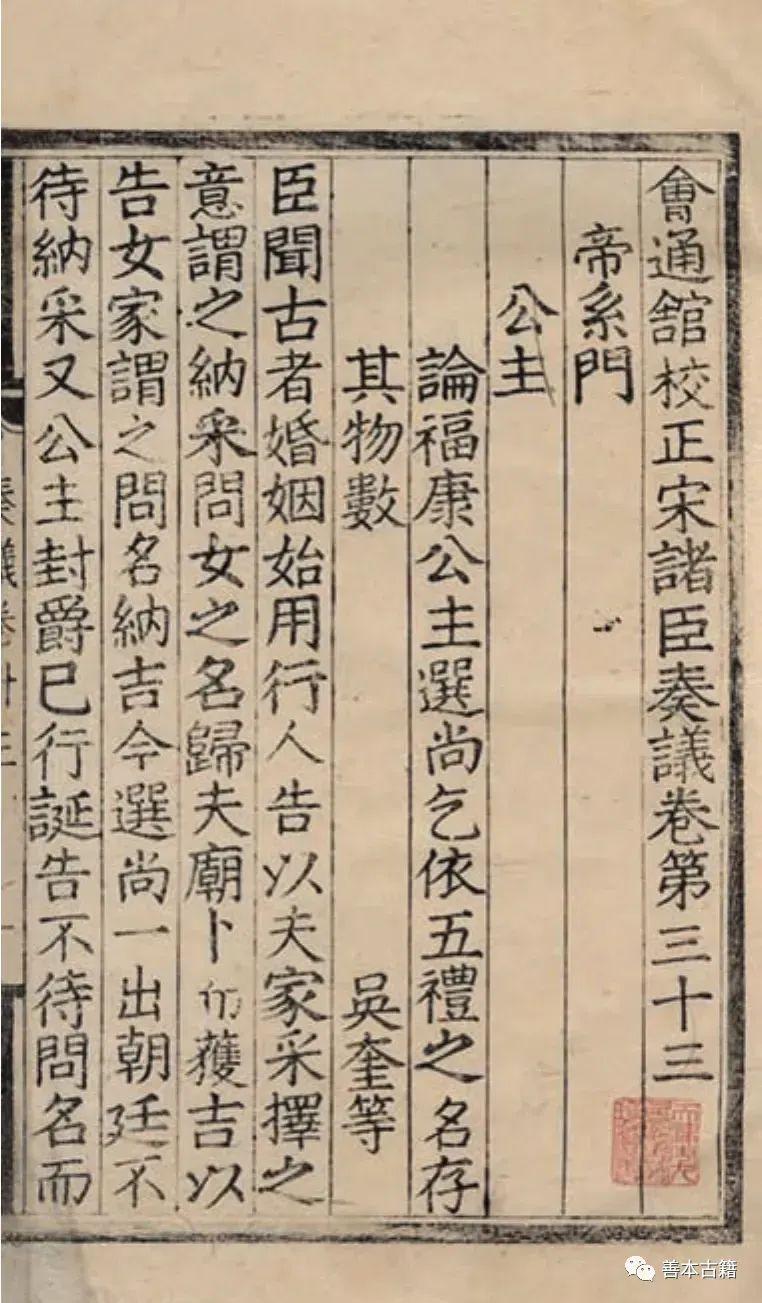 會通舘校正宋諸臣奏議卷第三十三
帝系門
公主
論福康公主選尚乞依五禮之名存
其物數 吳奎等
臣聞古者婚姻始用行人告以夫家采擇之
意謂之納采問女之名歸夫廟卜而獲吉以
告女家謂之問名納吉今選尚一出朝廷不
待納采又公主封爵已行誕告不待問名而
奏議卷
善本古籍